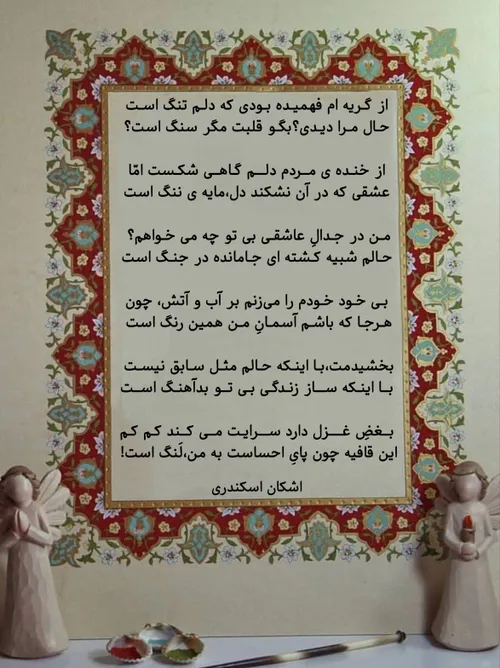 از گریه ام فهمیده بودی که دلم تنگ است
حال مرا دیدی؟بگو قلبت مگر سنگ است؟
از خنده ی مردم دلم گاهی شکست امّا
عشقی که در آن نشکند دل،مایه ی ننگ است
من در جدالِ عاشقی بی تو چه می خواهم؟
حالم شبیه کشته ای جامانده در جنگ است
بی خود خودم را می‌زنم بر آب و آتش، چون
هرجا که باشم آسمانِ من همین رنگ است
بخشیدمت،با اینکه حالم مثل سابق نیست
با اینکه ساز زندگی بی تو بدآهنگ است
بغضِ غزل دارد سرایت می کند کم کم
این قافیه چون پایِ احساست به من،لَنگ است!
اشکان اسکندری